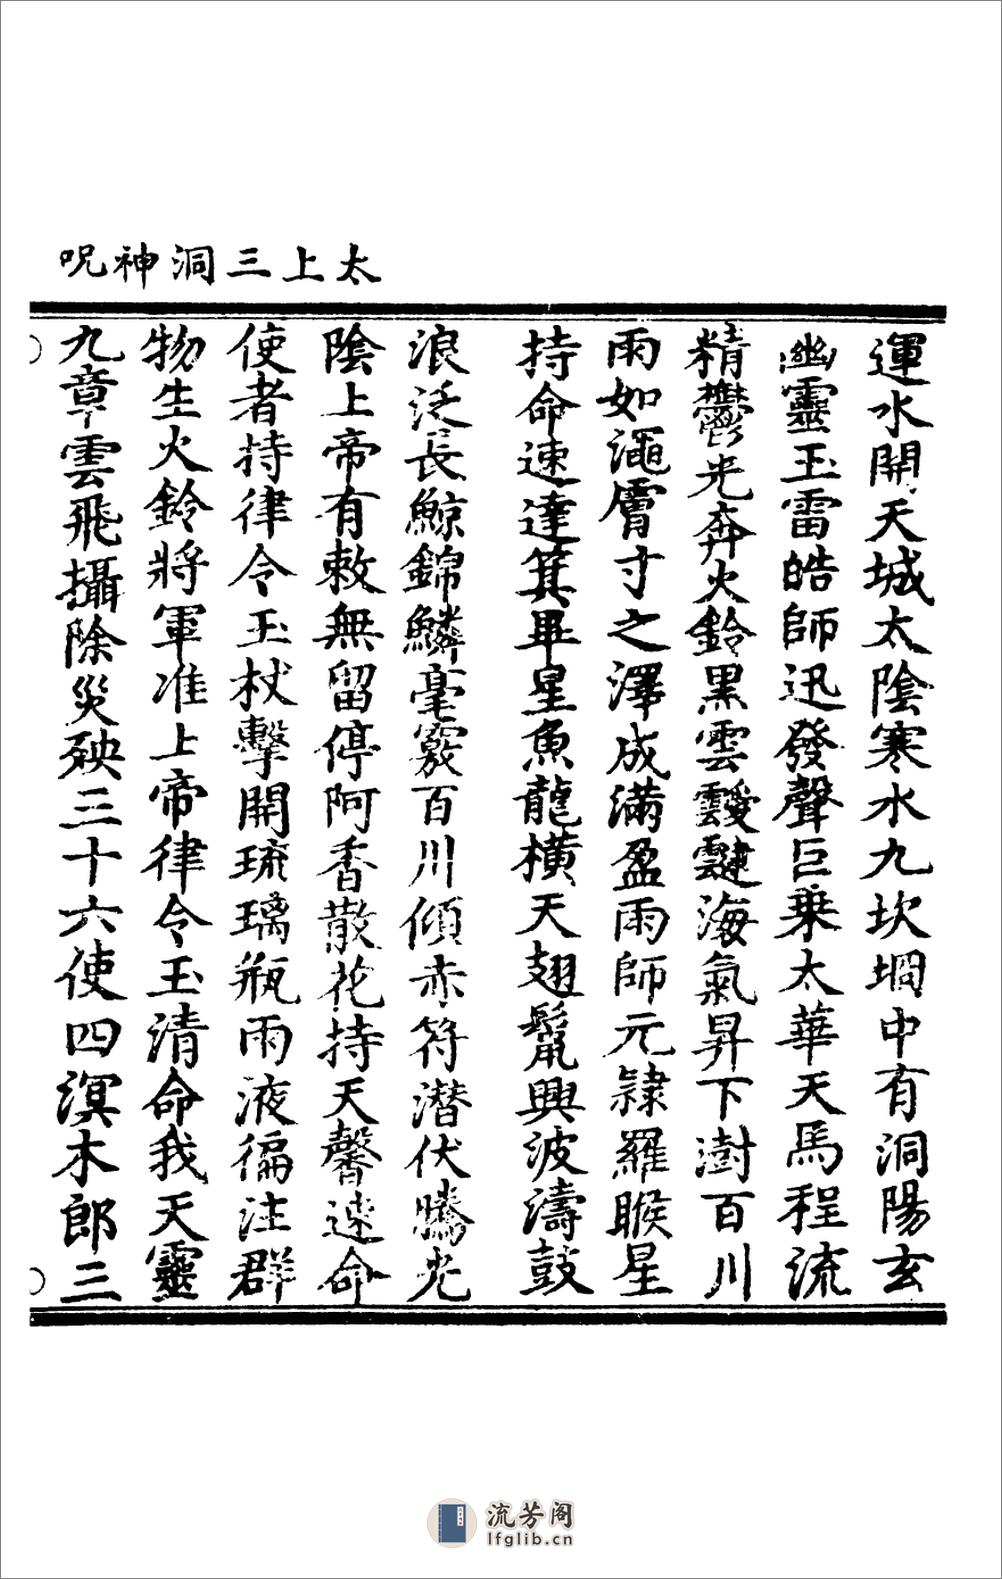 太上三洞神呪
運水開天城太陰寒水九坎堈中有洞陽玄
幽靈玉雷皓師迅發聲巨乘太華天馬程流
精鬱光奔火鈴黑雲靉靆海氣昇下澍百川
雨如澠膚寸之澤成滿盈雨師元隸羅睺星
持命速達箕畢星魚龍橫天翅鬣興波濤鼓
浪泛長鯨錦鱗毫竅百川傾赤符潛伏騰光
陰上帝有敕無留停阿香散花持天馨速命
使者持律令玉杖擊開琉璃瓶雨液徧注群
物生火鈴將軍准上帝律令玉清命我天靈
九章雲飛攝除災殃三十六使四溟木郎三
流芳阁
lfglib.cn